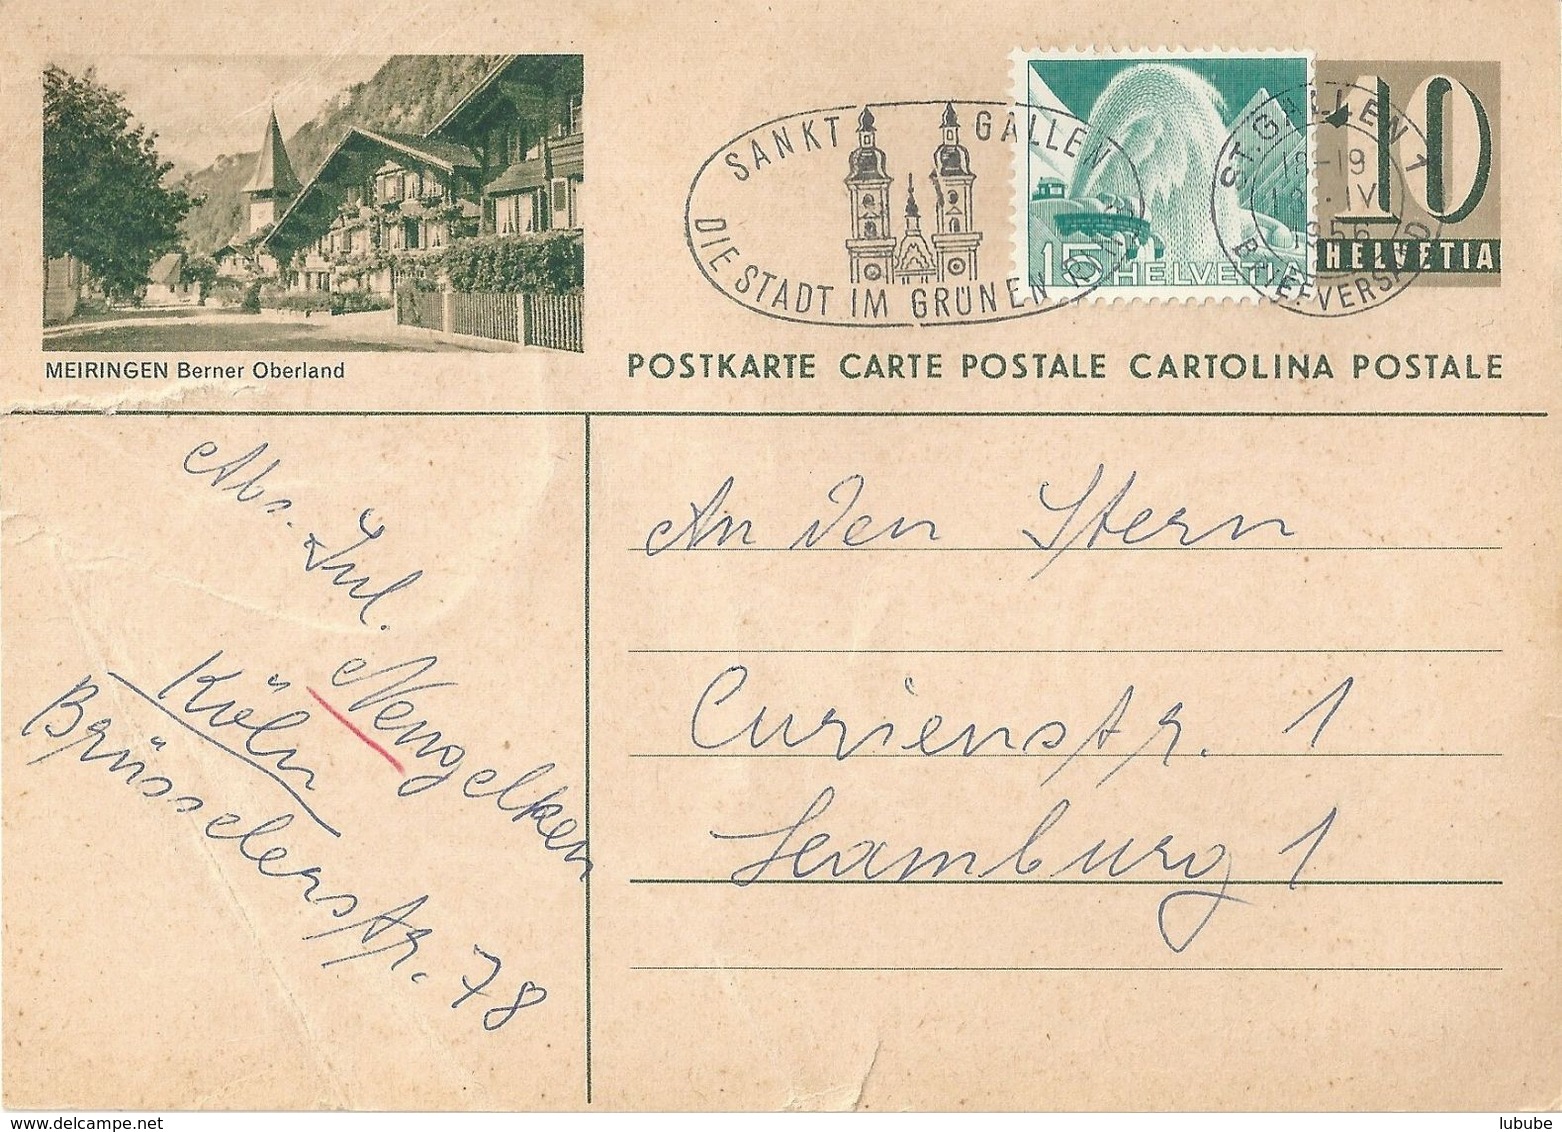 MEIRINGEN Berner Oberland
SANKT GALLEN
DIE STADT IM GRÜNEN RING
15 HELVETIA
ST. GALLEN 1
-19
IV
1956
BRIEFVERSAND
10
HELVETIA
POSTKARTE CARTE POSTALE CARTOLINA POSTALE
Abs. Jul. Nengelken
Köln
Brüsselerstr. 78
An den Stern
Curienstr. 1
Hamburg 1
www.delcampe.net
lubube